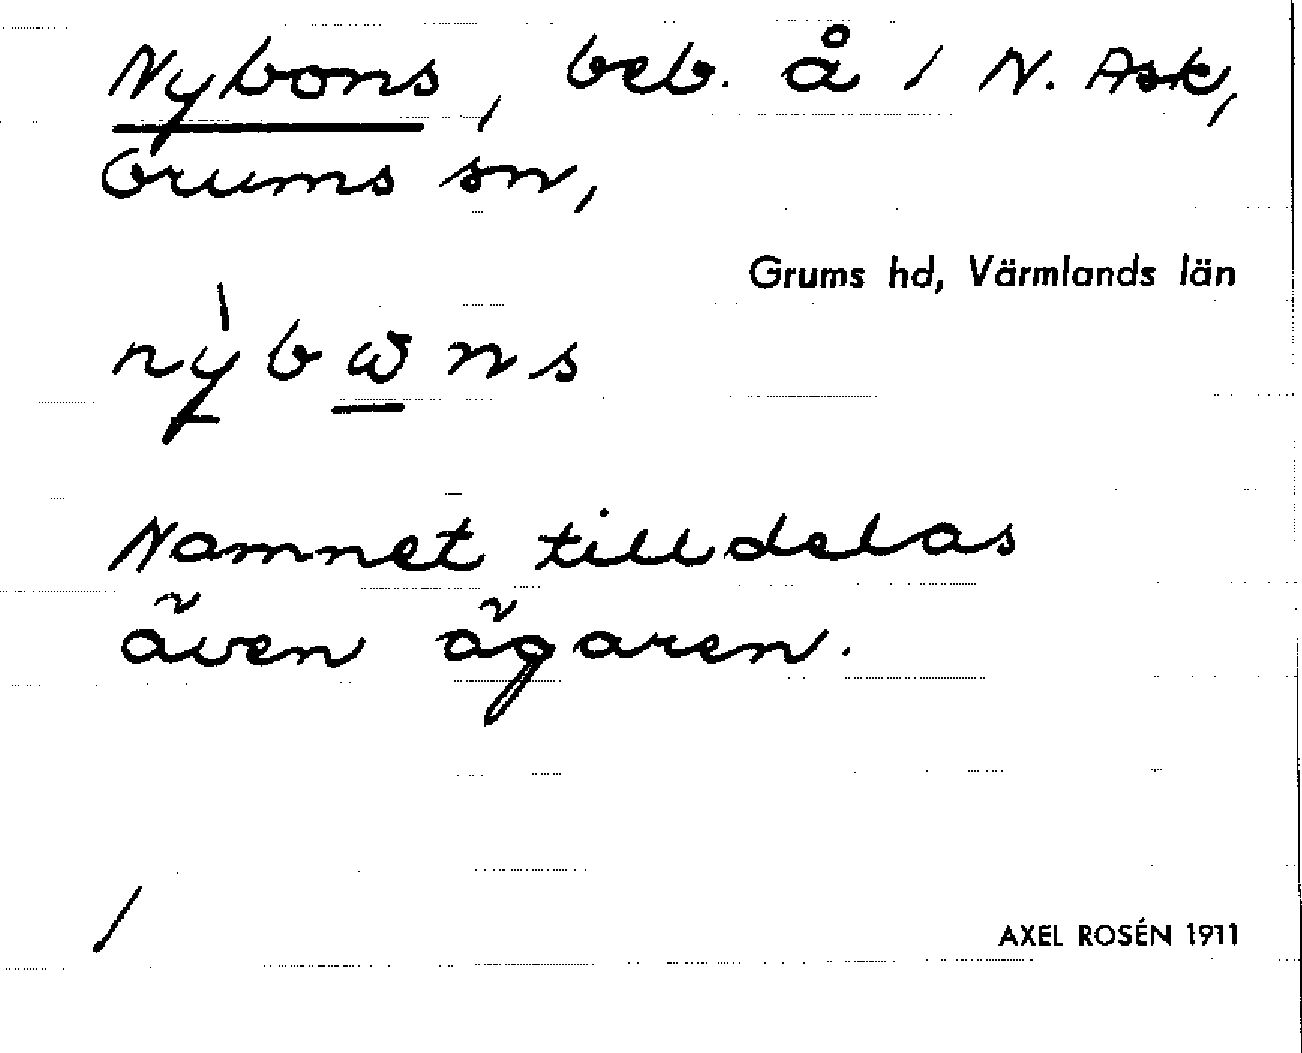 Nybons, beb. å 1 N. Ask,
Grums sn,
Grums hd, Värmlands län
Namnet tilldelas
även ägaren.
/
AXEL ROSÉN 1911